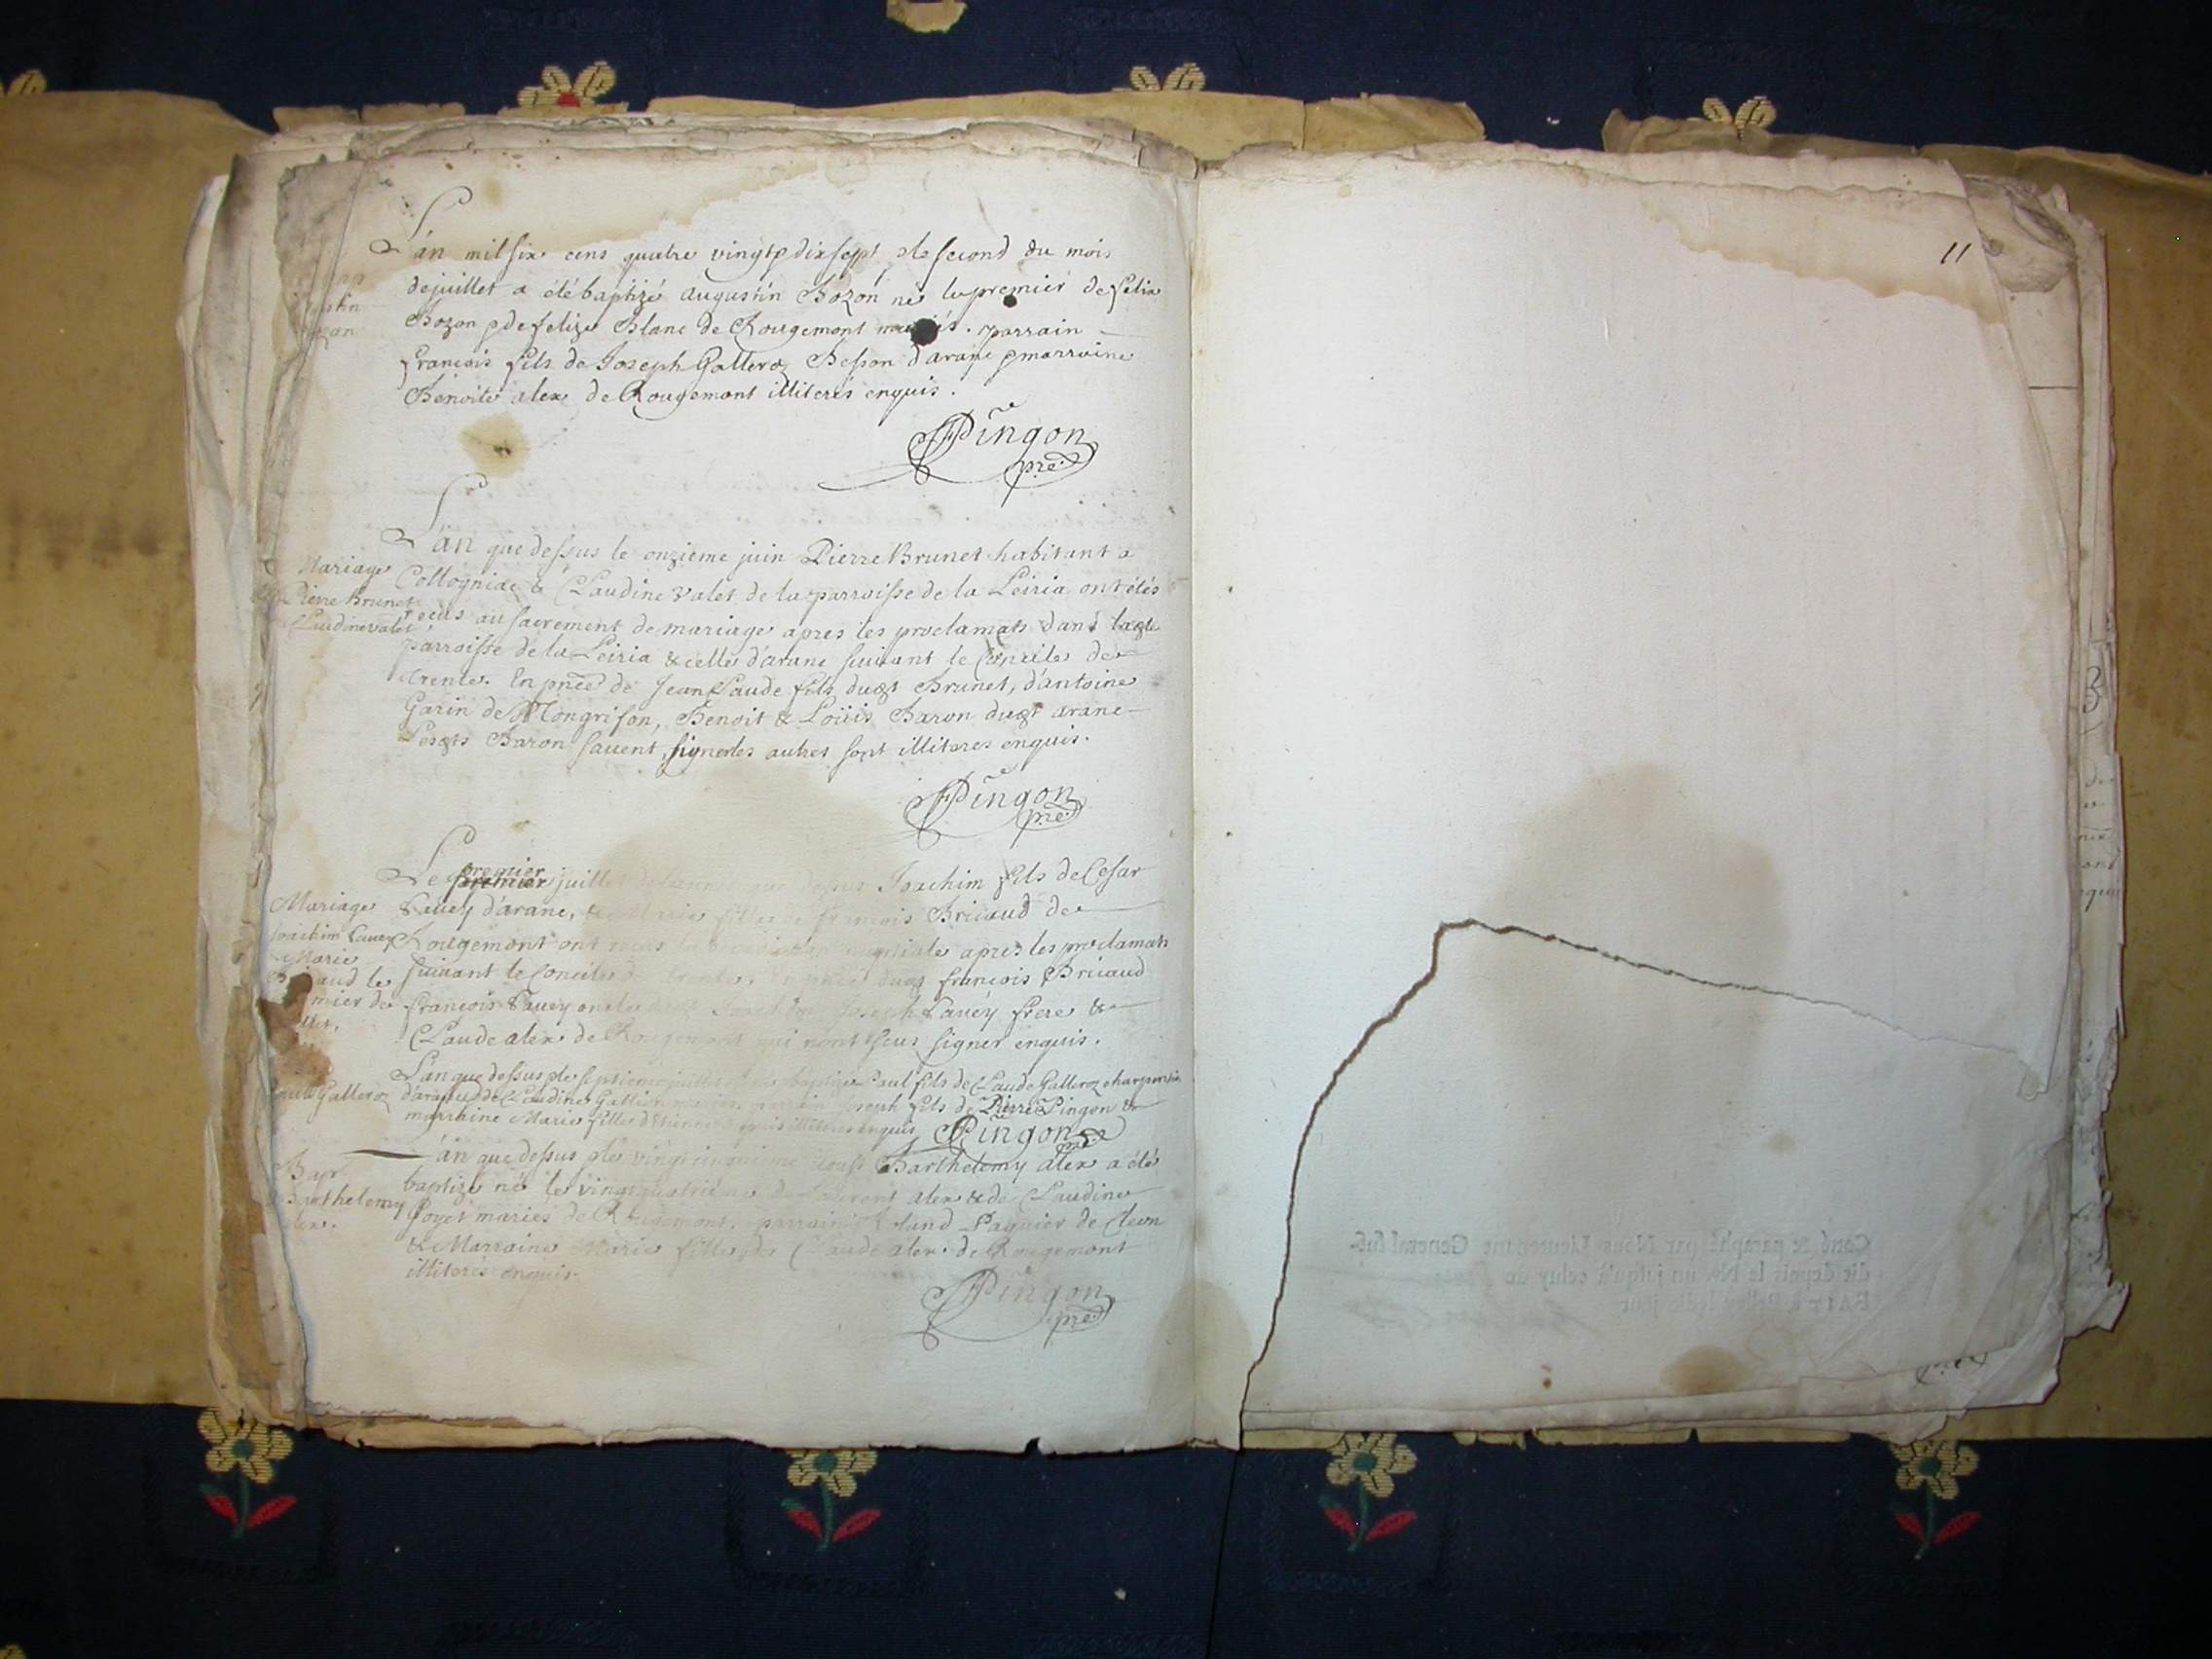 L'an mil six cens quatre vingt & dix sept & le second du mois
de juillet a été baptizé augustin Bozon né le premier de felix
Bozon & de felize Blanc de Rougemont mariés. parrain
françois fils de Joseph Galleroz Besson d'arane & marraine
Benoite alex de Rougemont illiterés enquis.
Pingon
pre.
L'an que dessus le onzieme juin Pierre Brunet habitant a
Mariage
Pierre Brunet
Claudine valet
Collogniae & Claudine valet de la parroisse de la Leiria ont étés
receus au sacrement de mariage apres les proclamats dans
parroisse de la Leiria & celle d'arane suivant le Concile de
trente. En pnce de Jean Claude fils dudt Brunet, d'antoine
Garin de Mongrifon, Benoit & Loüis Baron dudt arane
Lesdts Baron savent signer les autres sont illiteres enquis.
Pingon
pre.
Le premier juillet de l'année que dessus Joachim fils de Cesar
Mariage
Joachim Savey
Marie
aud le
mier de
Savey d'arane, & Marie fille de françois Bricaud de
Rougemont ont receus la benediction nuptiale apres les proclamats
suivant le Concile de trente. En pnce dudt françois Bricaud
françois Savey oncle Joseph Savéy frere &
Claude alex de Rougemont qui n'ont sceus signer enquis.
L'an que dessus & le septieme juillet baptizé Paul fils de Claude Galleroz charpentier
Paul Galleroz
d'arane & de Claudine Gallion mariés. parrain Joseph fils de Pierre Pingon &
marraine Marie fille d'Etienne illiteres enquis Pingon
pre.
L'an que dessus & le vingt cinquieme aoust Barthelemy alex a été
Bapt
Barthelemy
alex.
baptizé né le vingt quatrieme de Laurent alex & de Claudine
Goyet mariés de Rougemont. parrain Paquier de Cleon
& Marraine Marie fille de Claude alex de Rougemont
illiterés enquis.
Pingon
pre.
11
Coté & paraphé par Nous Lieutenant General sus-
dit depuis le No. un jusqu'à celuy de
FAIT à Belley le dit jour